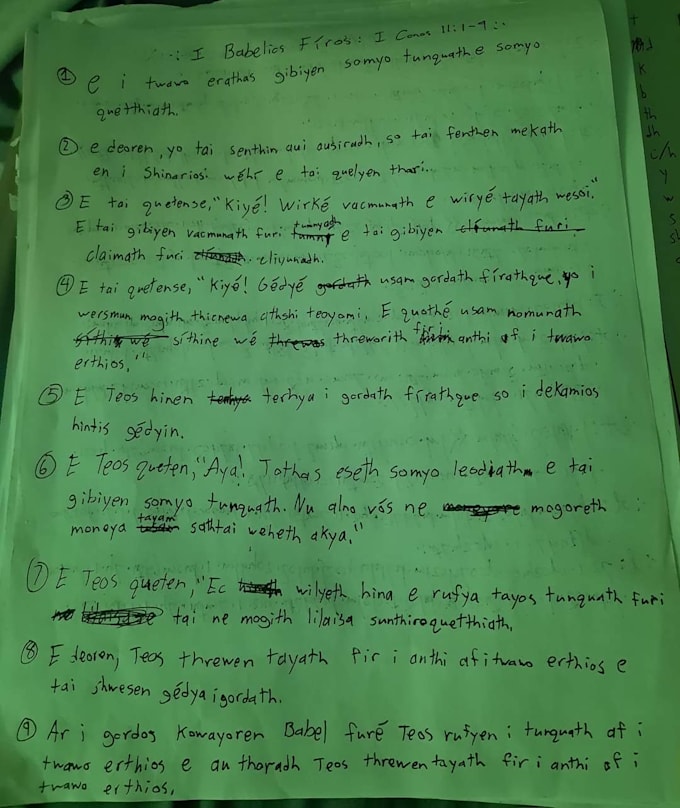 ∴ I Babelios Fíros: I Canas 11:1-9 ∴
① e i twawo erathas gibiyen somyo tunquath e somyo
quetthiath.
② e deoren, yo tai senthin aui ouširadh, so tai fenthen mekath
en i Shinariosi wéhr e tai quelyen thari.
③ E tai quetense, "Kiyé! Wirké vacmunath e wiryé tayath wessi."
E tai gibiyen vacmunath furi tunnyath e tai gibiyen
claimath furi cliyunadh.
④ E tai quetense, "Kiyé! Gédyé usam gordath fírathque, yo i
wersmun magith thicnewa athshi teoyomi. E quothé usam nomunath
síthine wé threworith fir i anthi af i twawo
erthios."
⑤ E Teos hinen terhya i gordath fírathque so i dekamios
hintis gédyin.
⑥ E Teos queten, "Aya! Tathas eseth somyo leodiath e tai
gibiyen somyo tunquath. Nu alno vós ne mogoreth
moneya tayam sahtai weheth akya."
⑦ E Teos queten, "Ec wilyeth hina e rufya tayos tunquath furi
tai ne mogith lilaisa sunthiroquetthiath.
⑧ E deoren, Teos threwen tayath fir i anthi af i twawo erthios e
tai shwesen gédya i gordath.
⑨ Ar i gordos Kowayoren Babel furé Teos rufyen i tunquath af i
twawo erthios e an tharadh Teos threwen tayath fir i anthi of i
twawo erthios.